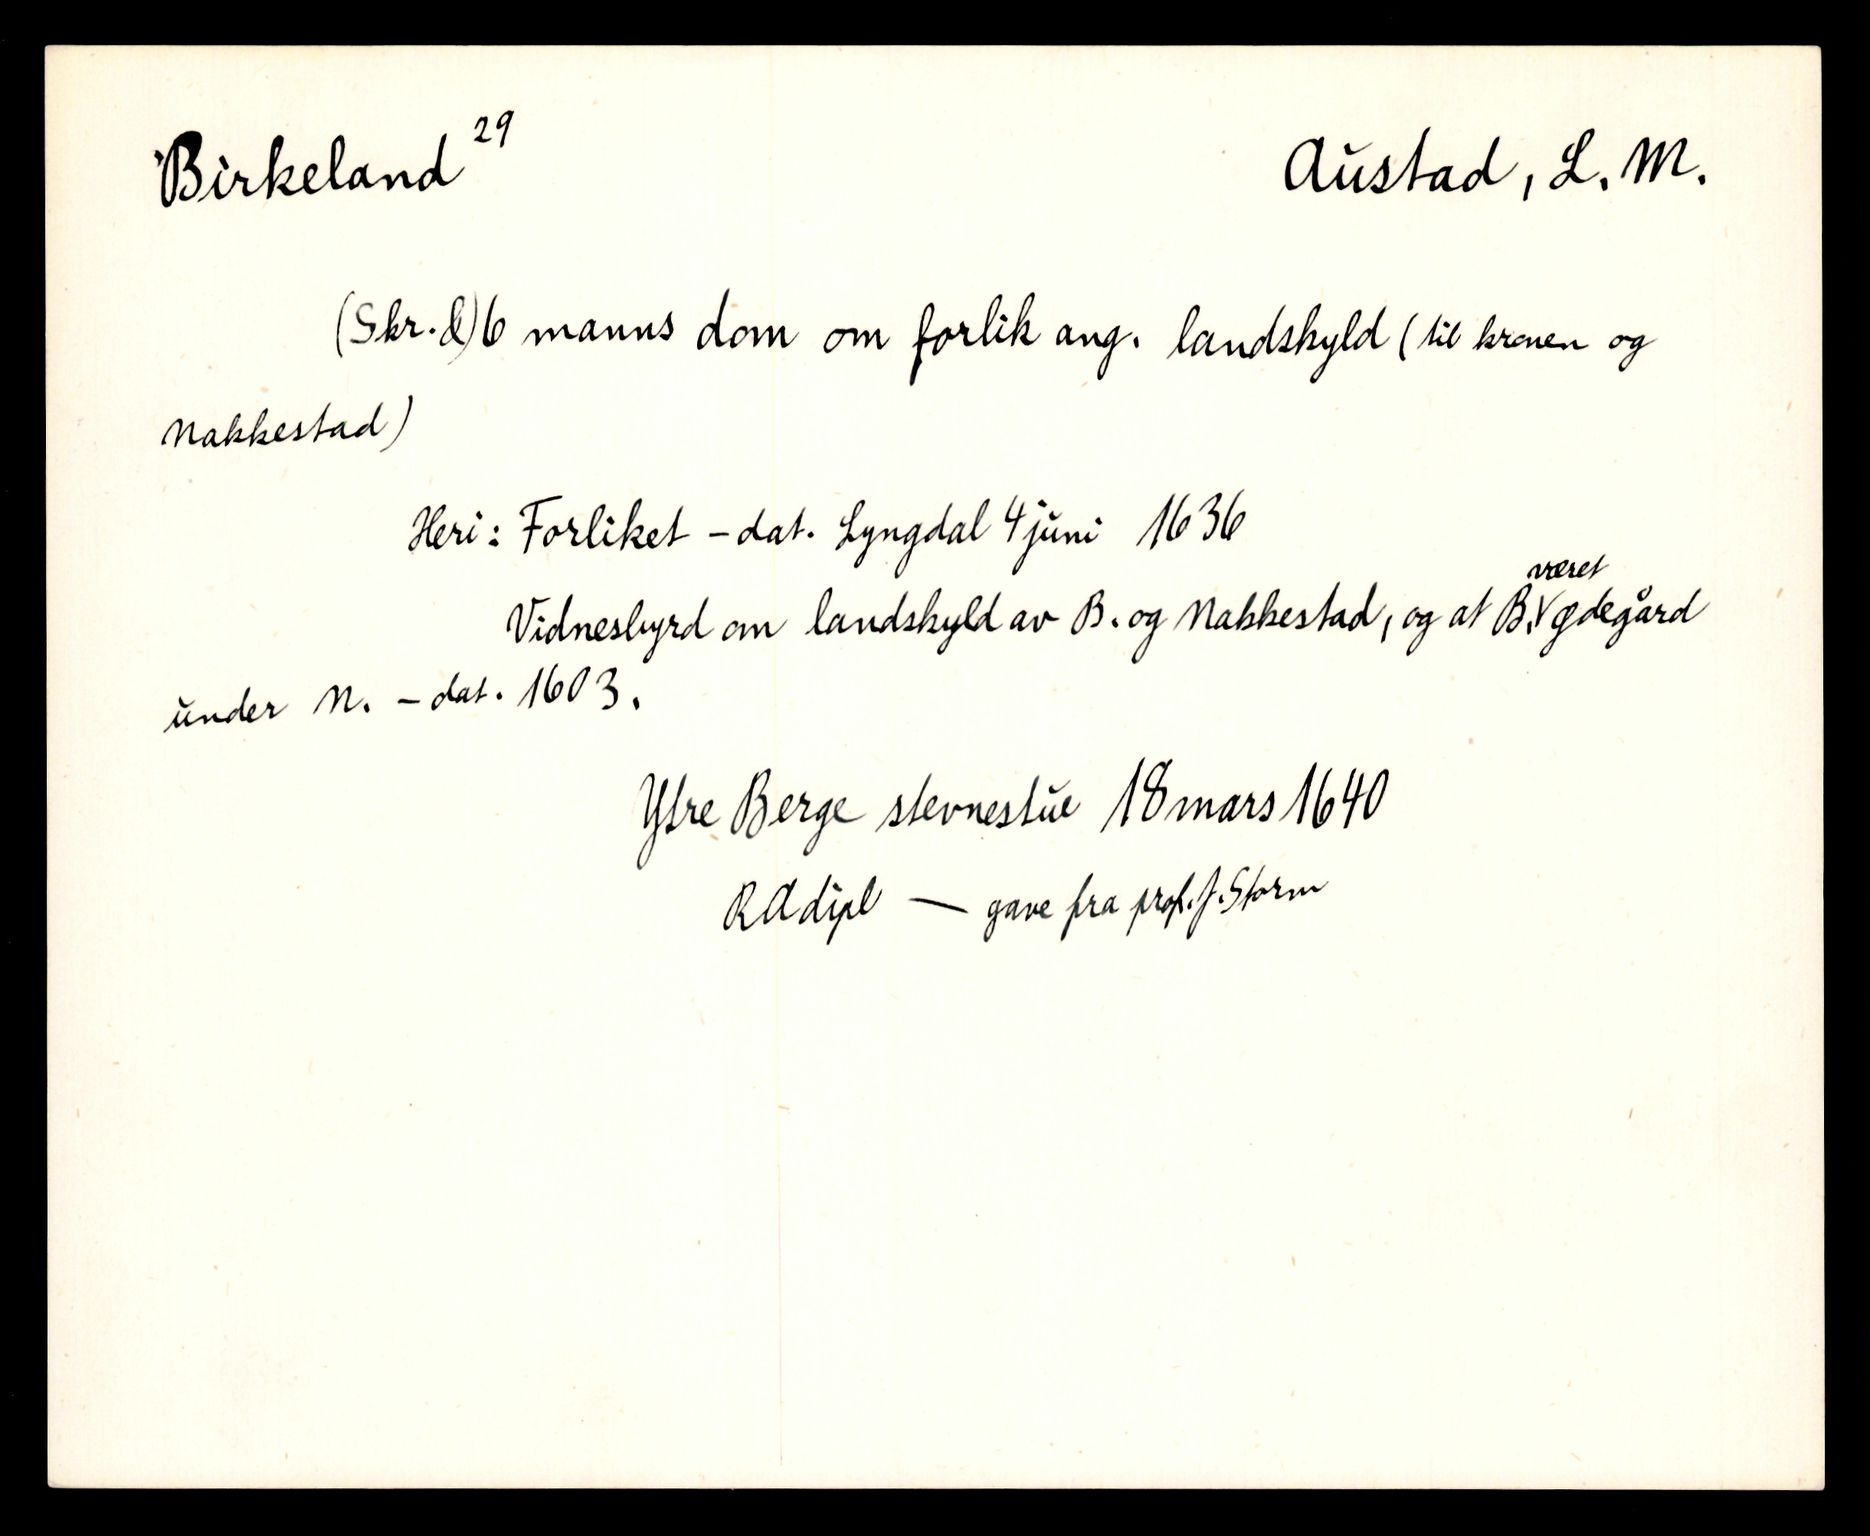 Birkeland 29 Austad, L. M.
(Skr. &) 6 manns dom om forlik ang. landskyld (til kronen og
Nakkestad)
Heri: Forliket - dat. Lyngdal 4 juni 1636
været
Vidnesbyrd om landskyld av B. og Nakkestad, og at B. ødegård
under N. - dat. 1603.
Ytre Berge stevnestue 18 mars 1640
RA dipl — gave fra prof. J. Storm